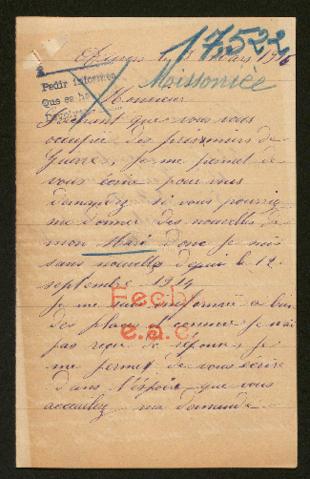 le 8 mars 1916
17522
Moissonier
Pedir informes
Que se ha
Monsieur
que vous vous
occupée des prisonniers de
Guerre, je me permet de
vous écrire pour vous
demandez si vous pourriez
me donner des nouvelles de
mon Mari donc je suis
sans nouvelles depuis le 12
septembre 1914
Fecha
e.a.c.
Je me suis informée a bien
des places et comme je n'ai
pas reçu de réponse, je
me permet de vous écrire
dans l'éspoir que vous
acceuilez ma demande